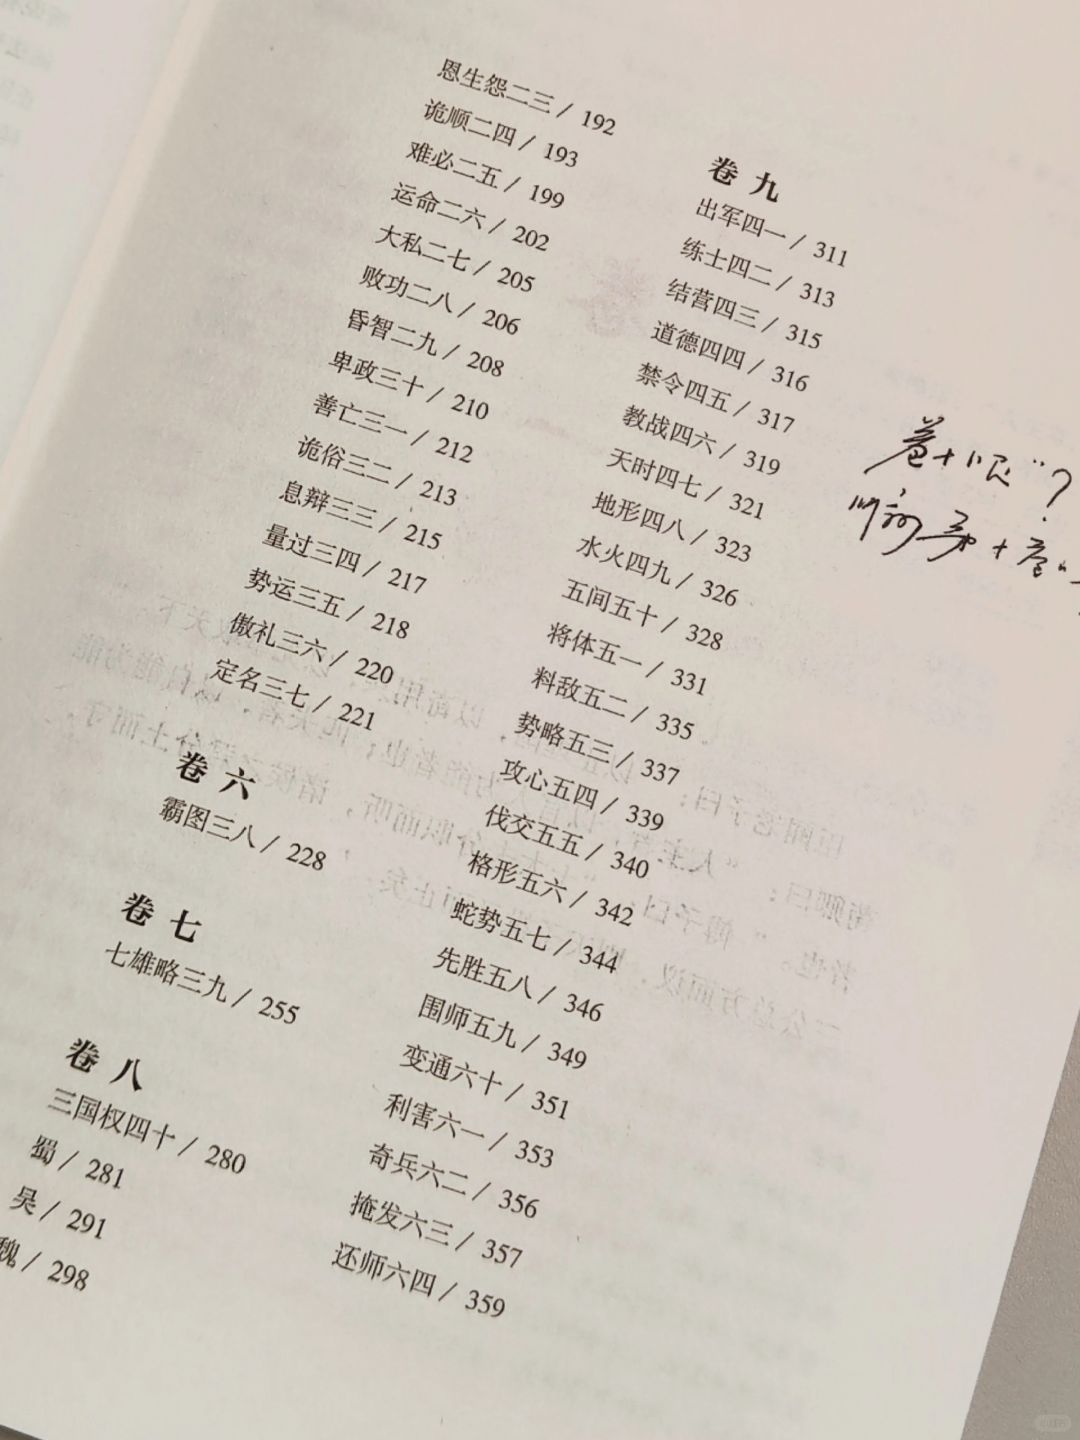 恩生怨二三 / 192
诡顺二四 / 193
难必二五 / 199
运命二六 / 202
大私二七 / 205
败功二八 / 206
昏智二九 / 208
卑政三十 / 210
善亡三一 / 212
诡俗三二 / 213
息辩三三 / 215
量过三四 / 217
势运三五 / 218
傲礼三六 / 220
定名三七 / 221
卷六
霸图三八 / 228
卷七
七雄略三九 / 255
卷八
三国权四十 / 280
蜀 / 281
吴 / 291
魏 / 298
卷九
出军四一 / 311
练士四二 / 313
结营四三 / 315
道德四四 / 316
禁令四五 / 317
教战四六 / 319
天时四七 / 321
地形四八 / 323
水火四九 / 326
五间五十 / 328
将体五一 / 331
料敌五二 / 335
势略五三 / 337
攻心五四 / 339
伐交五五 / 340
格形五六 / 342
蛇势五七 / 344
先胜五八 / 346
围师五九 / 349
变通六十 / 351
利害六一 / 353
奇兵六二 / 356
掩发六三 / 357
还师六四 / 359